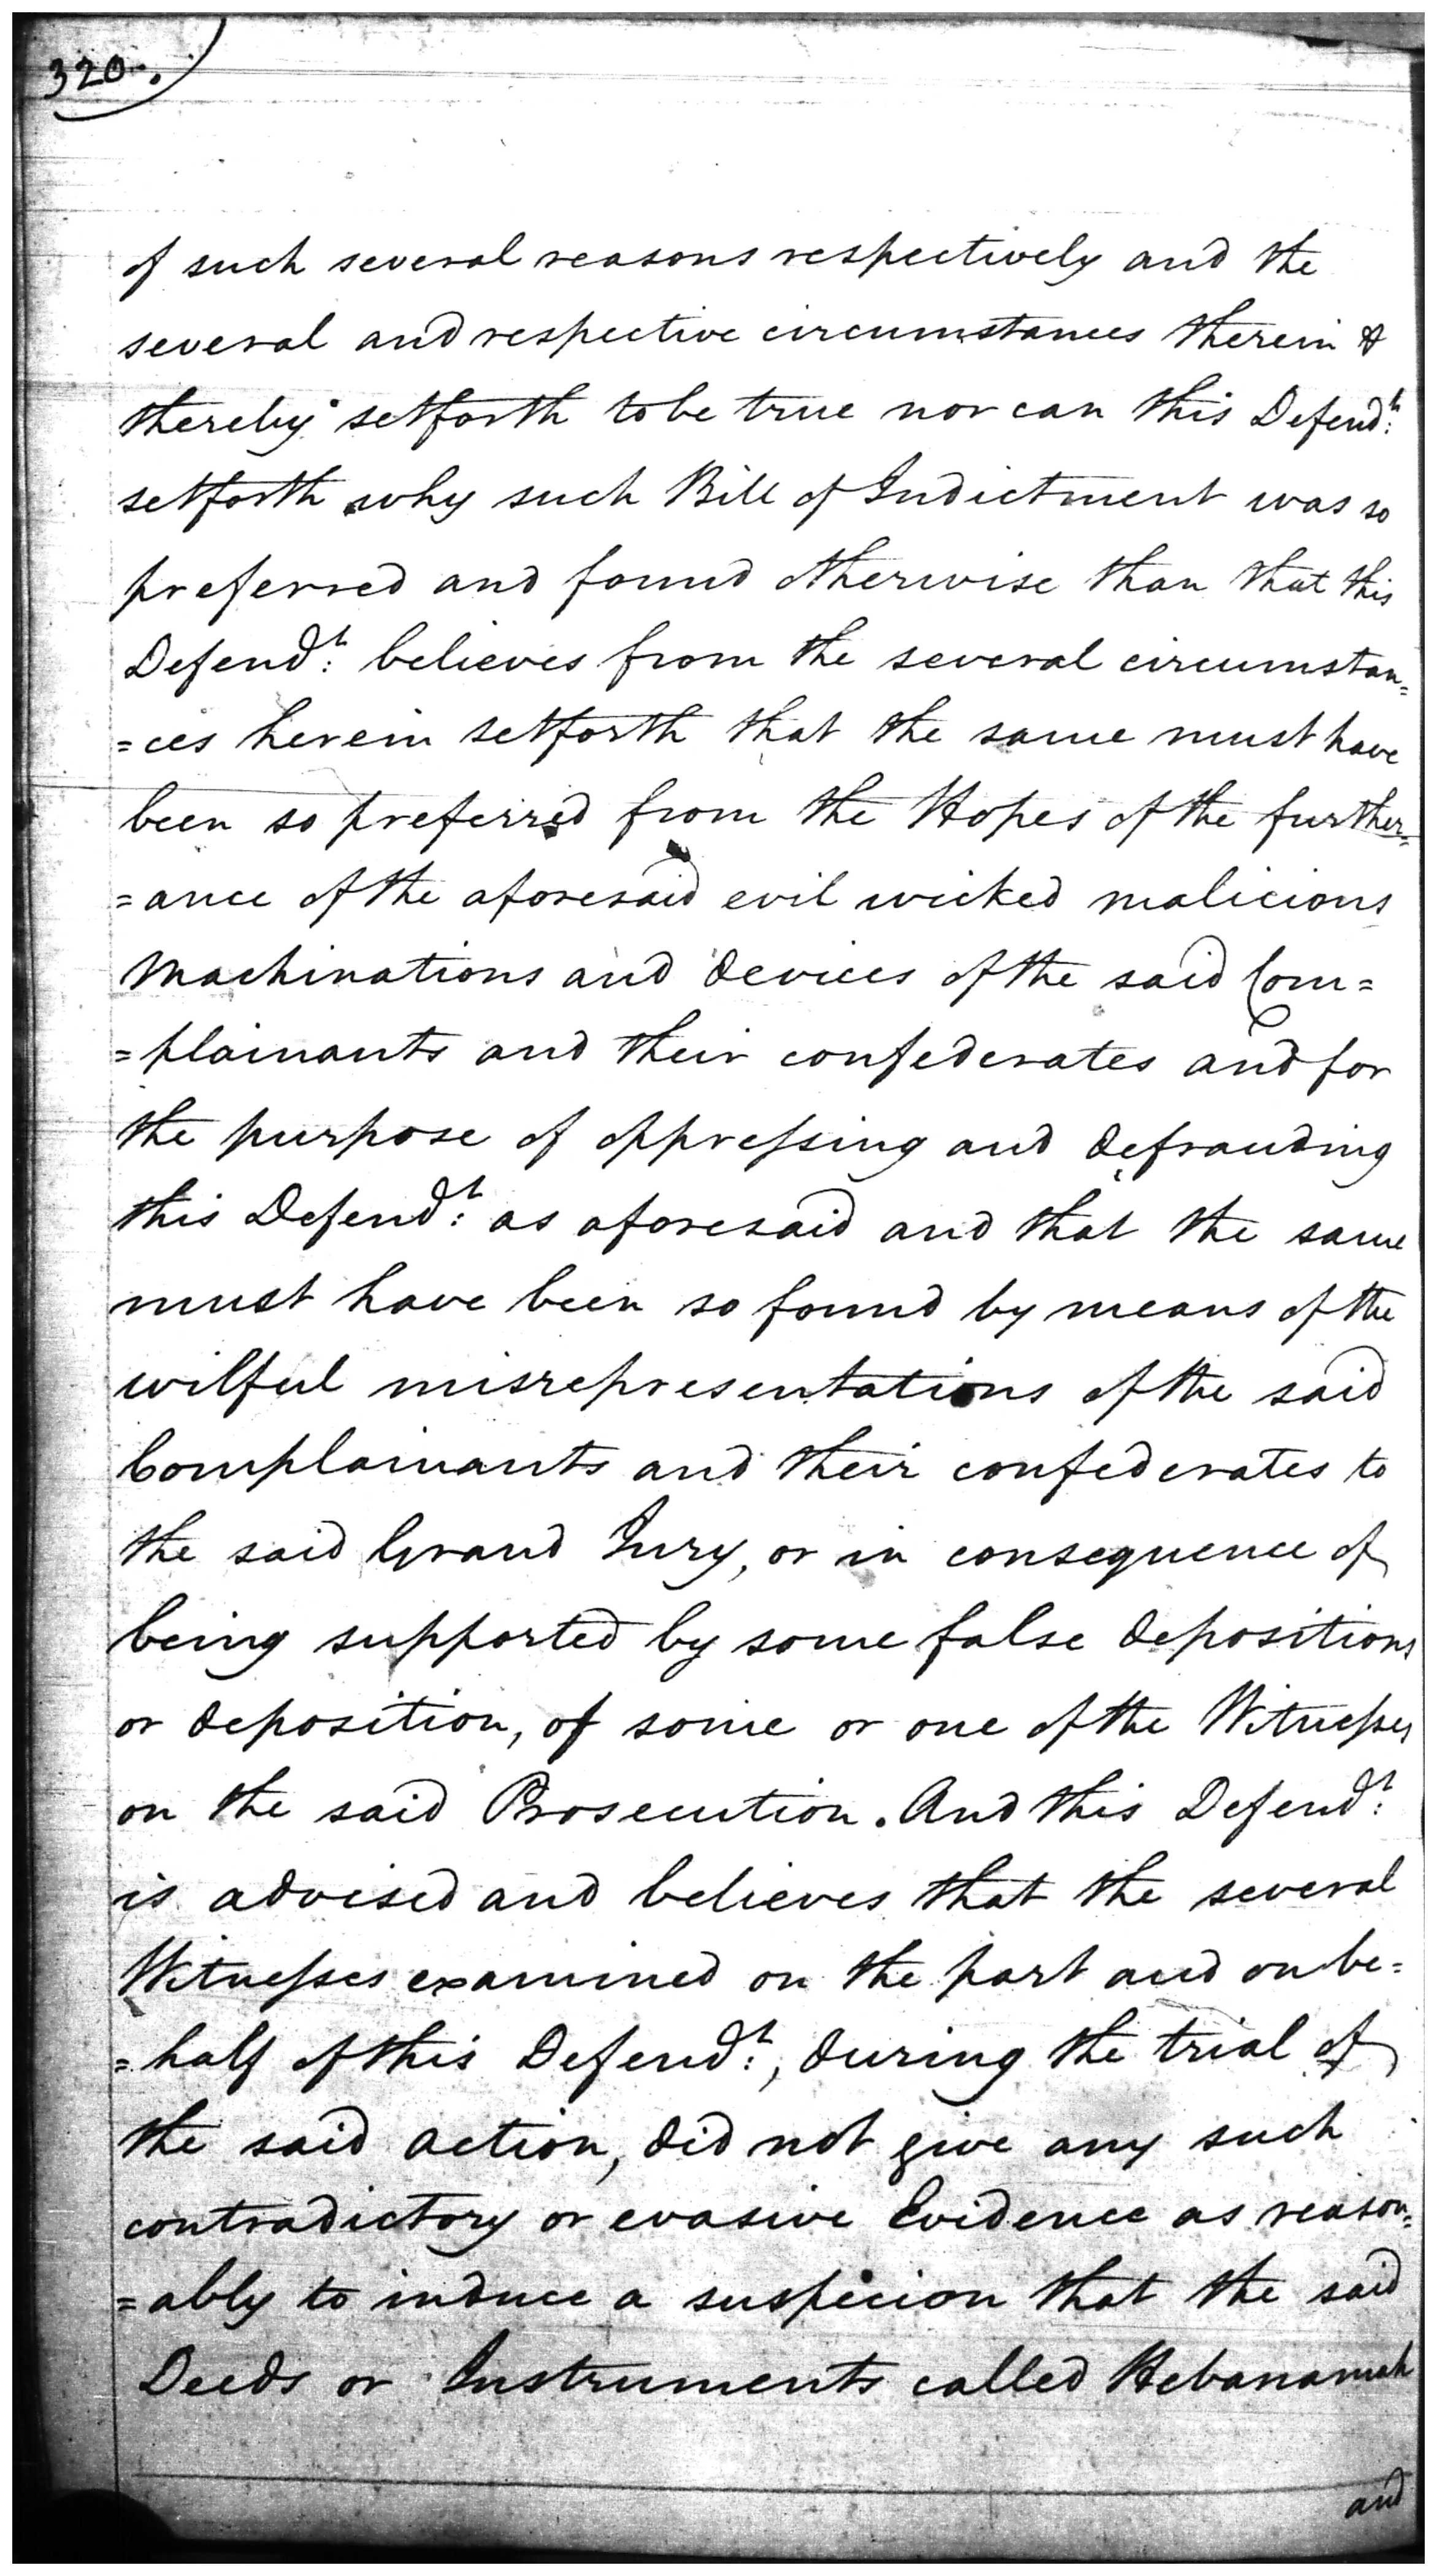 320.
of such several reasons respectively and the
several and respective circumstances therein &
thereby setforth to be true nor can this Defend.t
setforth why such Bill of Indictment was so
preferred and found otherwise than that this
Defend.t believes from the several circumstan=
=ces herein setforth that the same must have
been so preferred from the Hopes of the further=
=ance of the aforesaid evil wicked malicious
Machinations and devices of the said Com=
=plainants and their confederates and for
the purpose of oppreſsing and defrauding
this Defend.t as aforesaid and that the same
must have been so found by means of the
wilful misrepresentations of the said
Complainants and their confederates to
the said Grand Jury, or in consequence of
being supported by some false depositions
or deposition, of some or one of the Witneſses
on the said Prosecution. And this Defend.t
is advised and believes that the several
Witneſses examined on the part and on be=
=half of this Defend.t, during the trial of
the said action, did not give any such
contradictory or evasive Evidence as reason=
=ably to induce a suspicion that the said
Deeds or Instruments called Hebanamah
and